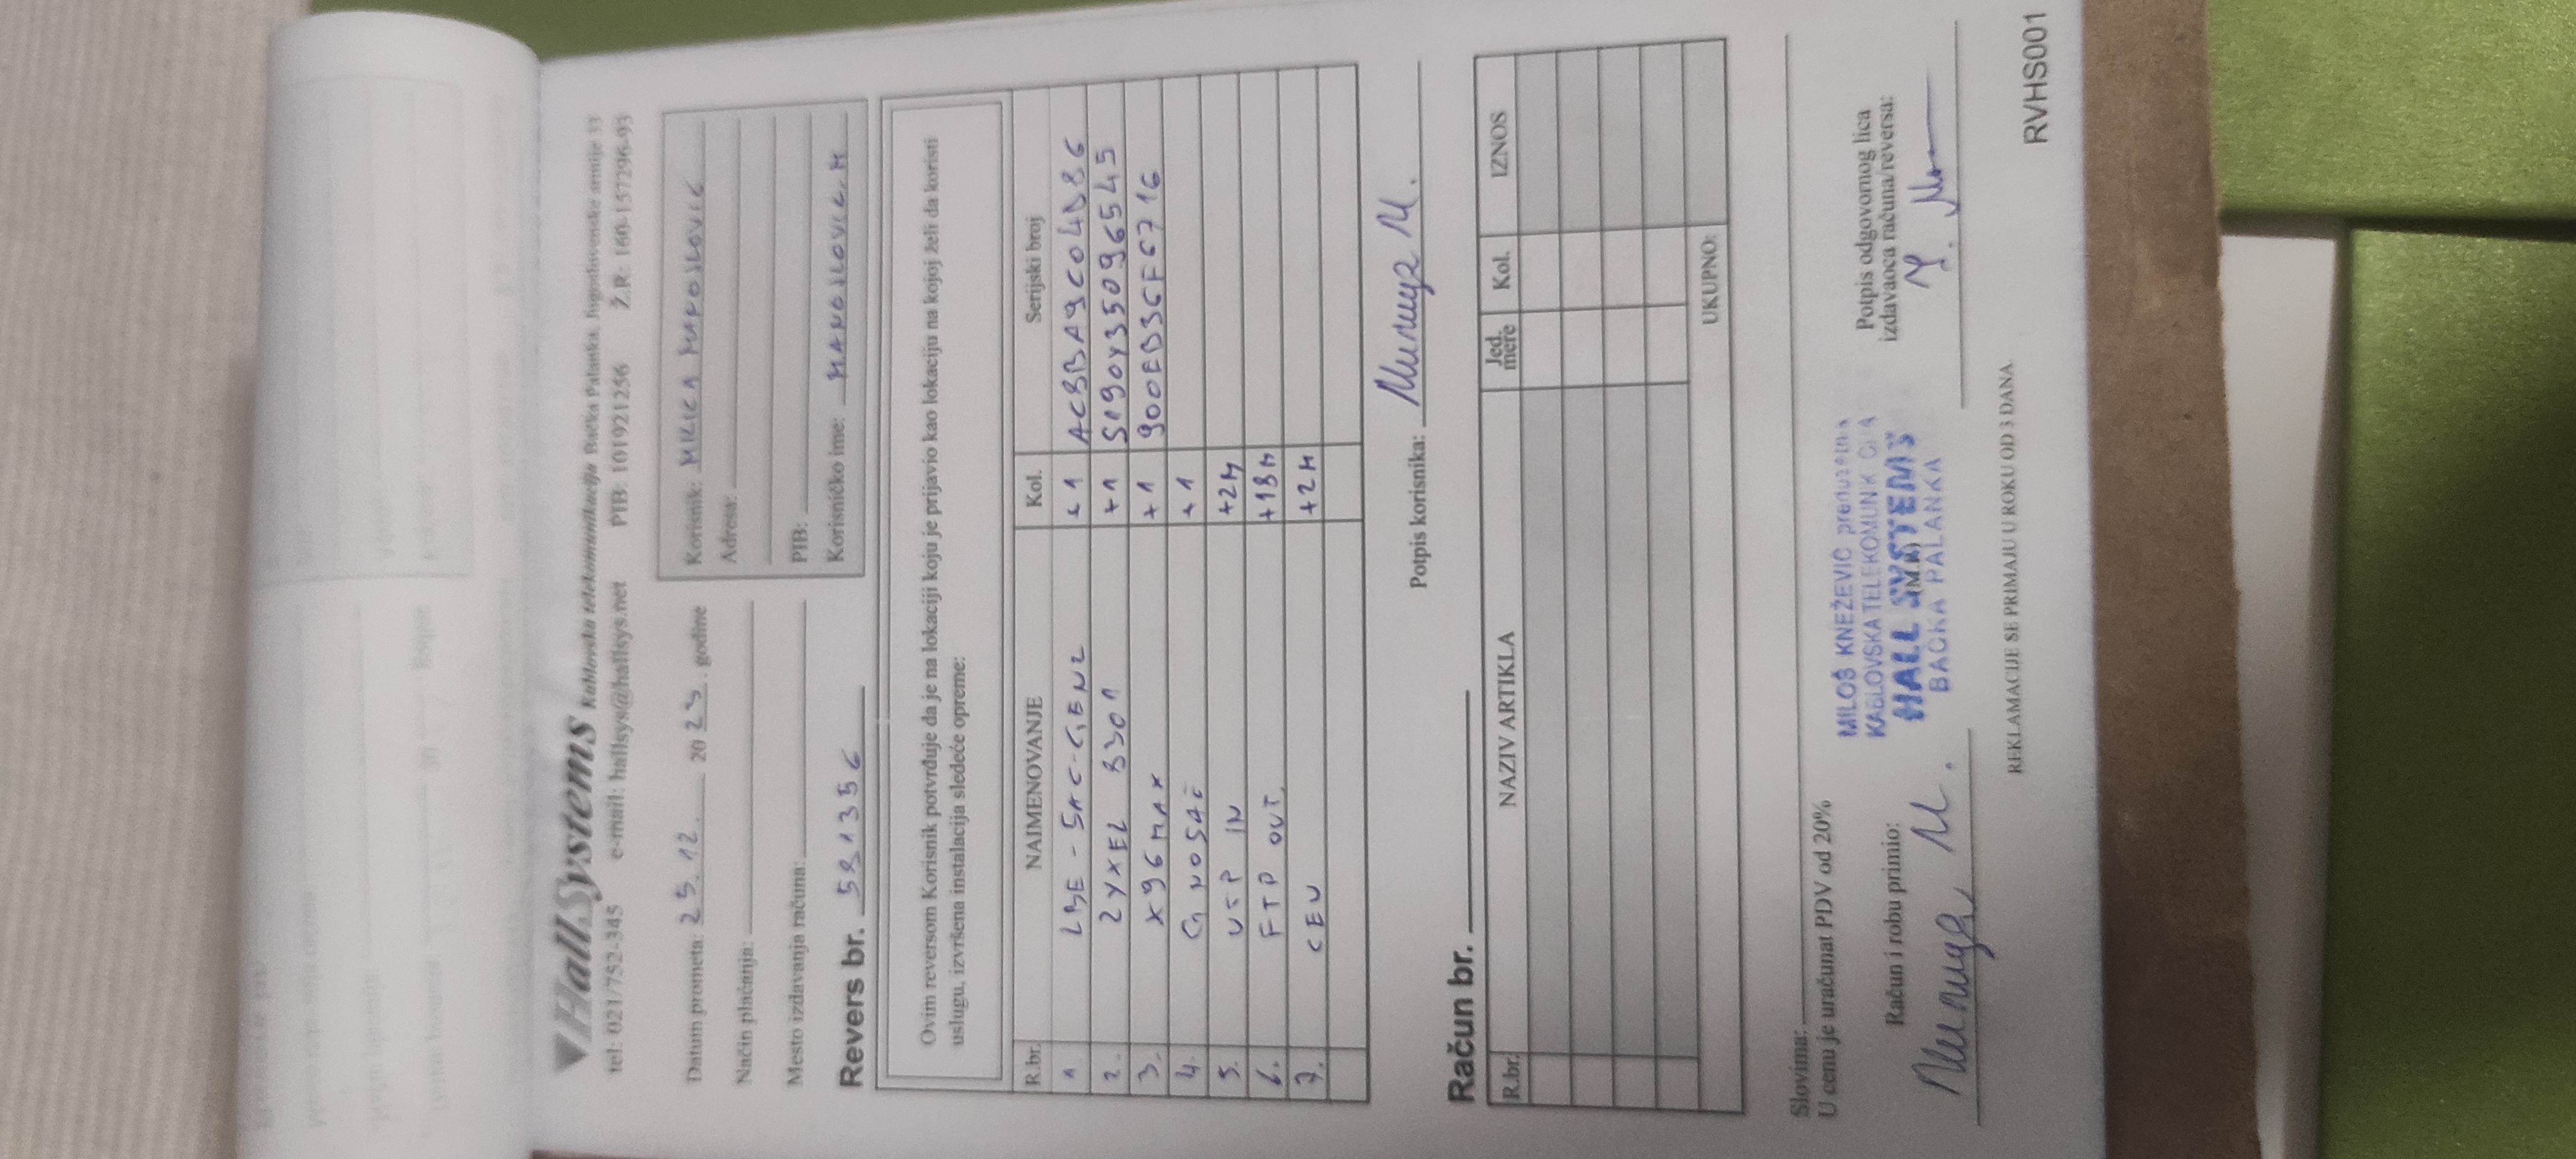 HallSystems Kablovska telekomunikacija Bačka Palanka, Jugoslovenske armije 33
tel: 021/752-345 e-mail: hallsys@hallsys.net PIB: 101921256 Ž.R: 160-157296-93
Datum prometa: 25.12. 2023. godine
Način plaćanja:
Mesto izdavanja računa:
Korisnik: MILICA MANOJLOVIĆ
Adresa:
PIB:
Korisničko ime: MANOJLOVIC.M
Revers br. 581356
Ovim reversom Korisnik potvrđuje da je na lokaciji koju je prijavio kao lokaciju na kojoj želi da koristi
uslugu, izvršena instalacija sledeće opreme:
R.br. NAIMENOVANJE Kol. Serijski broj
1 LBE-5AC-GEN2 +1 AC8BA9C04B86
2. ZYXEL 3301 +1 S190Y35096545
3. X96 MAX +1 900EB36F6716
4. G NOSAČ +1
5. UTP IN +2M
6. FTP OUT. +18M
7. CEV +2M
Potpis korisnika: Милица М.
Račun br.
R.br. NAZIV ARTIKLA Jed. mere Kol. IZNOS
UKUPNO:
Slovima:
U cenu je uračunat PDV od 20%
Račun i robu primio:
Милица М.
MILOŠ KNEŽEVIĆ
KABLOVSKA TELEKOMUNIK
HALL SYSTEMS
(M.P.)
BAČKA PALANKA
Potpis odgovornog lica
izdavaoca računa/reversa:
REKLAMACIJE SE PRIMAJU U ROKU OD 3 DANA.
RVHS001